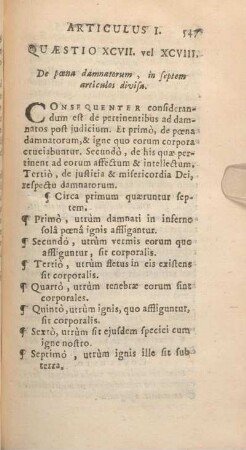 ARTICULUS I. 547
QUÆSTIO XCVII. vel XCVIII.
De pœna damnatorum, in septem
articulos divisa.
CONSEQUENTER consideran-
dum est de pertinentibus ad dam-
natos post judicium. Et primò, de pœna
damnatorum, & igne quo eorum corpora
cruciabuntur. Secundò, de his quæ perti-
nent ad eorum affectum & intellectum.
Tertiò, de justitia & misericordia Dei,
respecto damnatorum.
¶ Circa primum quæruntur sep-
tem.
¶ Primò, utrùm damnati in inferno
solâ pœnâ ignis affligantur.
¶ Secundò, utrùm vermis eorum quo
affliguntur, sit corporalis.
¶ Tertiò, utrùm fletus in eis existens
sit corporalis.
¶ Quartò, utrùm tenebræ eorum sint
corporales.
¶ Quintò, utrùm ignis, quo affliguntur,
sit corporalis.
¶ Sextò, utrùm sit ejusdem speciei cum
igne nostro.
¶ Septimò, utrùm ignis ille sit sub
terra.